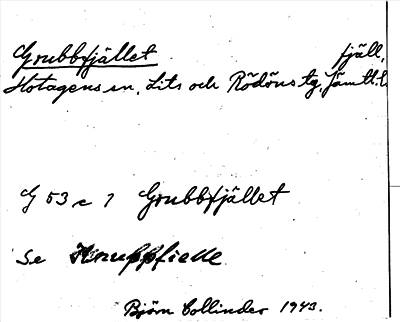 Grubbfjället fjäll,
Hotagens sn, Lits och Rödöns tg, Jämtl. l.
G 53 c 1 Grubbfjället
Se
Björn Collinder 1943.